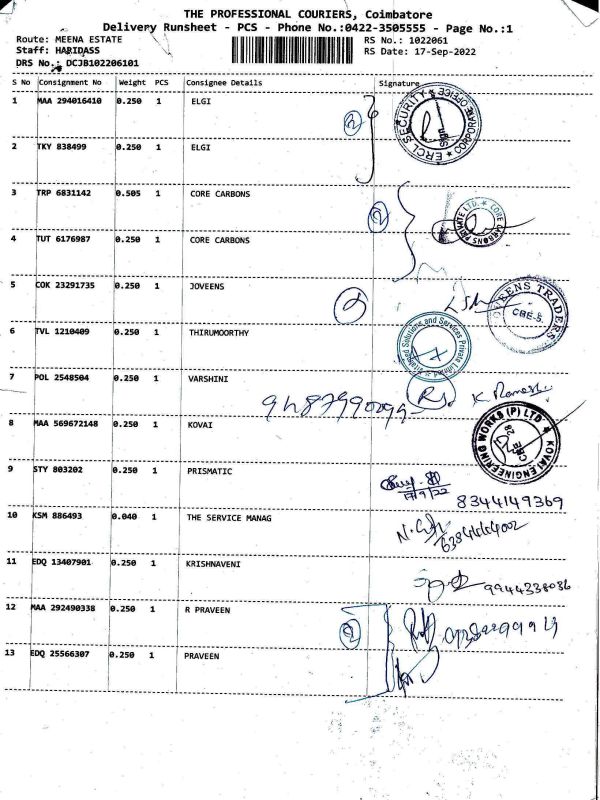 THE PROFESSIONAL COURIERS, Coimbatore
Delivery Runsheet - PCS - Phone No.:0422-3505555 - Page No.:1
Route: MEENA ESTATE RS No.: 1022061
Staff: HARIDASS RS Date: 17-Sep-2022
DRS No.: DCJB102206101
S No Consignment No Weight PCS Consignee Details Signature
1 MAA 294016410 0.250 1 ELGI
ERCL SECURITY CORPORATE OFFICE
2
2 TKY 838499 0.250 1 ELGI
3 TRP 6831142 0.505 1 CORE CARBONS
2
CORE CARBONS PRIVATE LTD.
4 TUT 6176987 0.250 1 CORE CARBONS
5 COK 23291735 0.250 1 JOVEENS
TRADERS
CBE-5
6 TVL 1210409 0.250 1 THIRUMOORTHY
Solutions and Services Private Limited
7 POL 2548504 0.250 1 VARSHINI
K Ramesh
8 MAA 569672148 0.250 1 KOVAI
KOVAI ENGINEERING WORKS (P) LTD
CBE
28
9 STY 803202 0.250 1 PRISMATIC
17/9/22
8344149369
10 KSM 886493 0.040 1 THE SERVICE MANAG
11 EDQ 13407901 0.250 1 KRISHNAVENI
9944338036
12 MAA 292490338 0.250 1 R PRAVEEN
2
13 EDQ 25566307 0.250 1 PRAVEEN